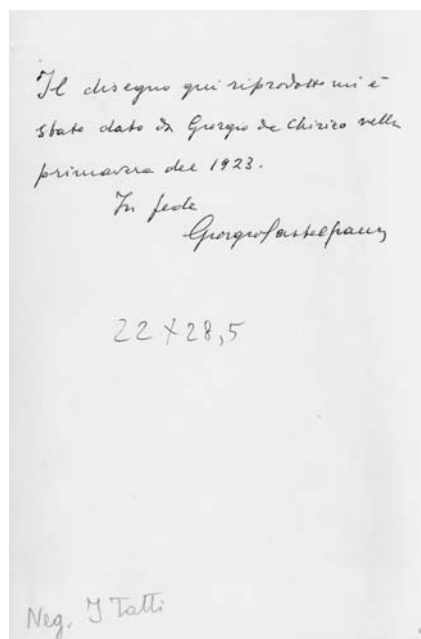 Il disegno qui riprodotto mi è
stato dato da Giorgio de Chirico nella
primavera del 1923.
In fede
Giorgio Castelfranco
22 X 28,5
Neg. I Tatti